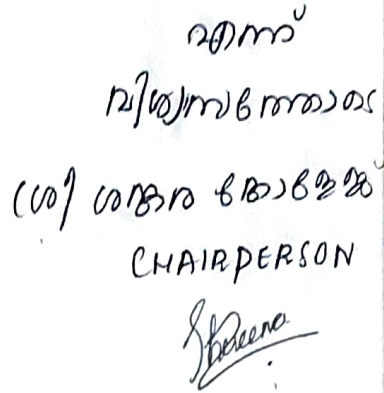 എന്ന്
വിശ്വാസത്തോടെ
(ശ്രീ ശങ്കര കോളേജ്
CHAIRPERSON